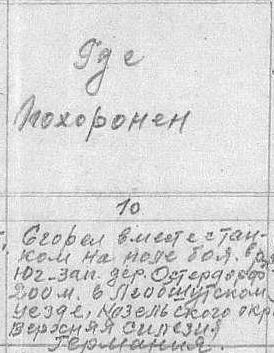 Где
похоронен
10
Сгорел вместе стан-
ком на поле боя. в
Юг-зап. дер. Остердорф
200м. в Леобшутском
уезде, Козельского окр.
Верхняя Силезия
Германия.